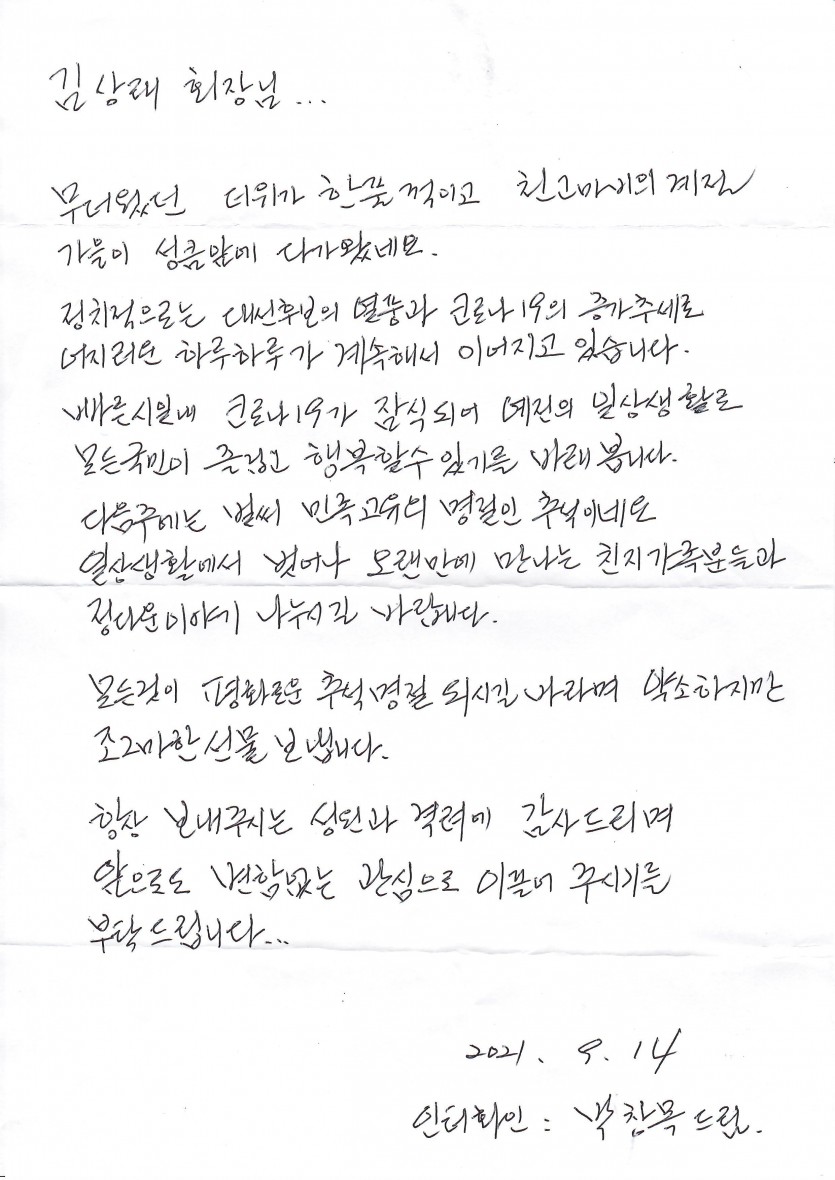 김상래 회장님 ...
무더웠던 더위가 한풀 꺽이고 천고마비의 계절
가을이 성큼앞에 다가왔네요.
정치적으로는 대선후보의 열풍과 코로나19의 증가추세로
어지러운 하루하루가 계속해서 이어지고 있습니다.
빠른시일내 코로나19가 잠식되어 예전의 일상생활로
모든국민이 즐겁고 행복할수 있기를 바래 봅니다.
다음주에는 벌써 민족고유의 명절인 추석이네요
일상생활에서 벗어나 오랜만에 만나는 친지가족분들과
정다운이야기 나누시길 바랍니다.
모든것이 평화로운 추석명절 되시길 바라며 약소하지만
조그마한선물 보냅니다.
항상 보내주시는 성원과 격려에 감사드리며
앞으로도 변함없는 관심으로 이끌어 주시기를
부탁드립니다...
2021. 9. 14
인터화인 : 박창목드림.